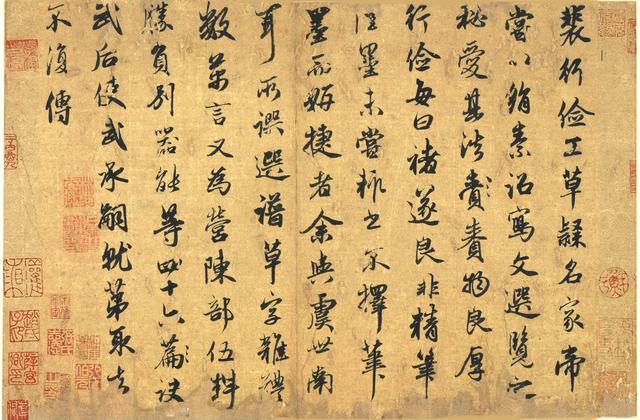 裴行儉工草隸名家帝
嘗以絹素詔寫文選覽之
祕愛其法賚物良厚
行儉每曰褚遂良非精筆
佳墨未嘗輒書不擇筆
墨而妍捷者余與虞世南
耳所譔選譜草字雜體
數萬言又為營陳部伍料
勝負別器能等四十六篇訣
武后使武承嗣就第取去
不復傳